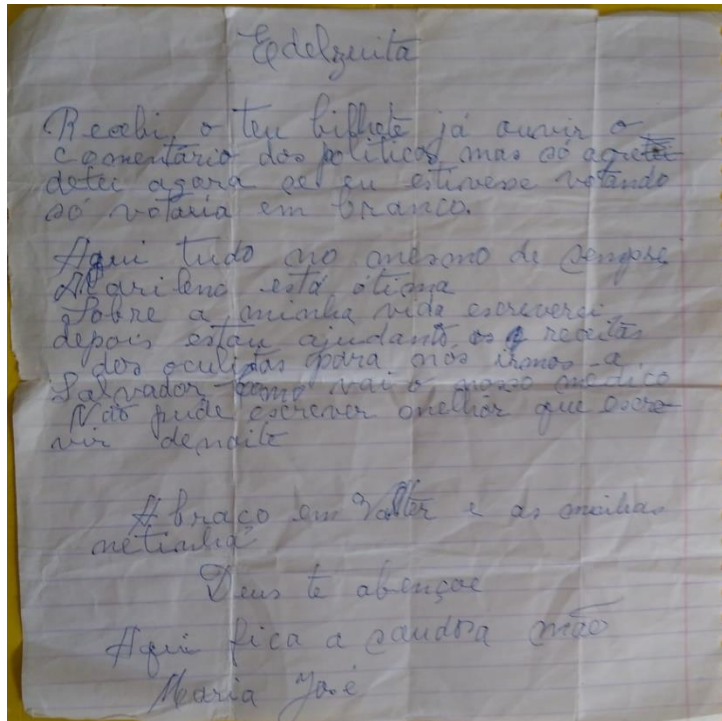 Edelzuita
Recebi o teu bilhete já ouvir o
comentário dos políticos, mas só
detei agora se eu estivese votando
só votaria em branco.
Aqui tudo no mesmo de sempre
Marileno está ótima
Sobre a minha vida escreverei
depois estau ajudante os receitas
dos oculistas para nós irmos a
Salvador como vai o nosso médico
Não pude escrever melhor que escre-
vir denoite
Abraço em Valter e as minhas
netinha
Deus te abençoe
Aqui fica a saudosa mão
Maria José